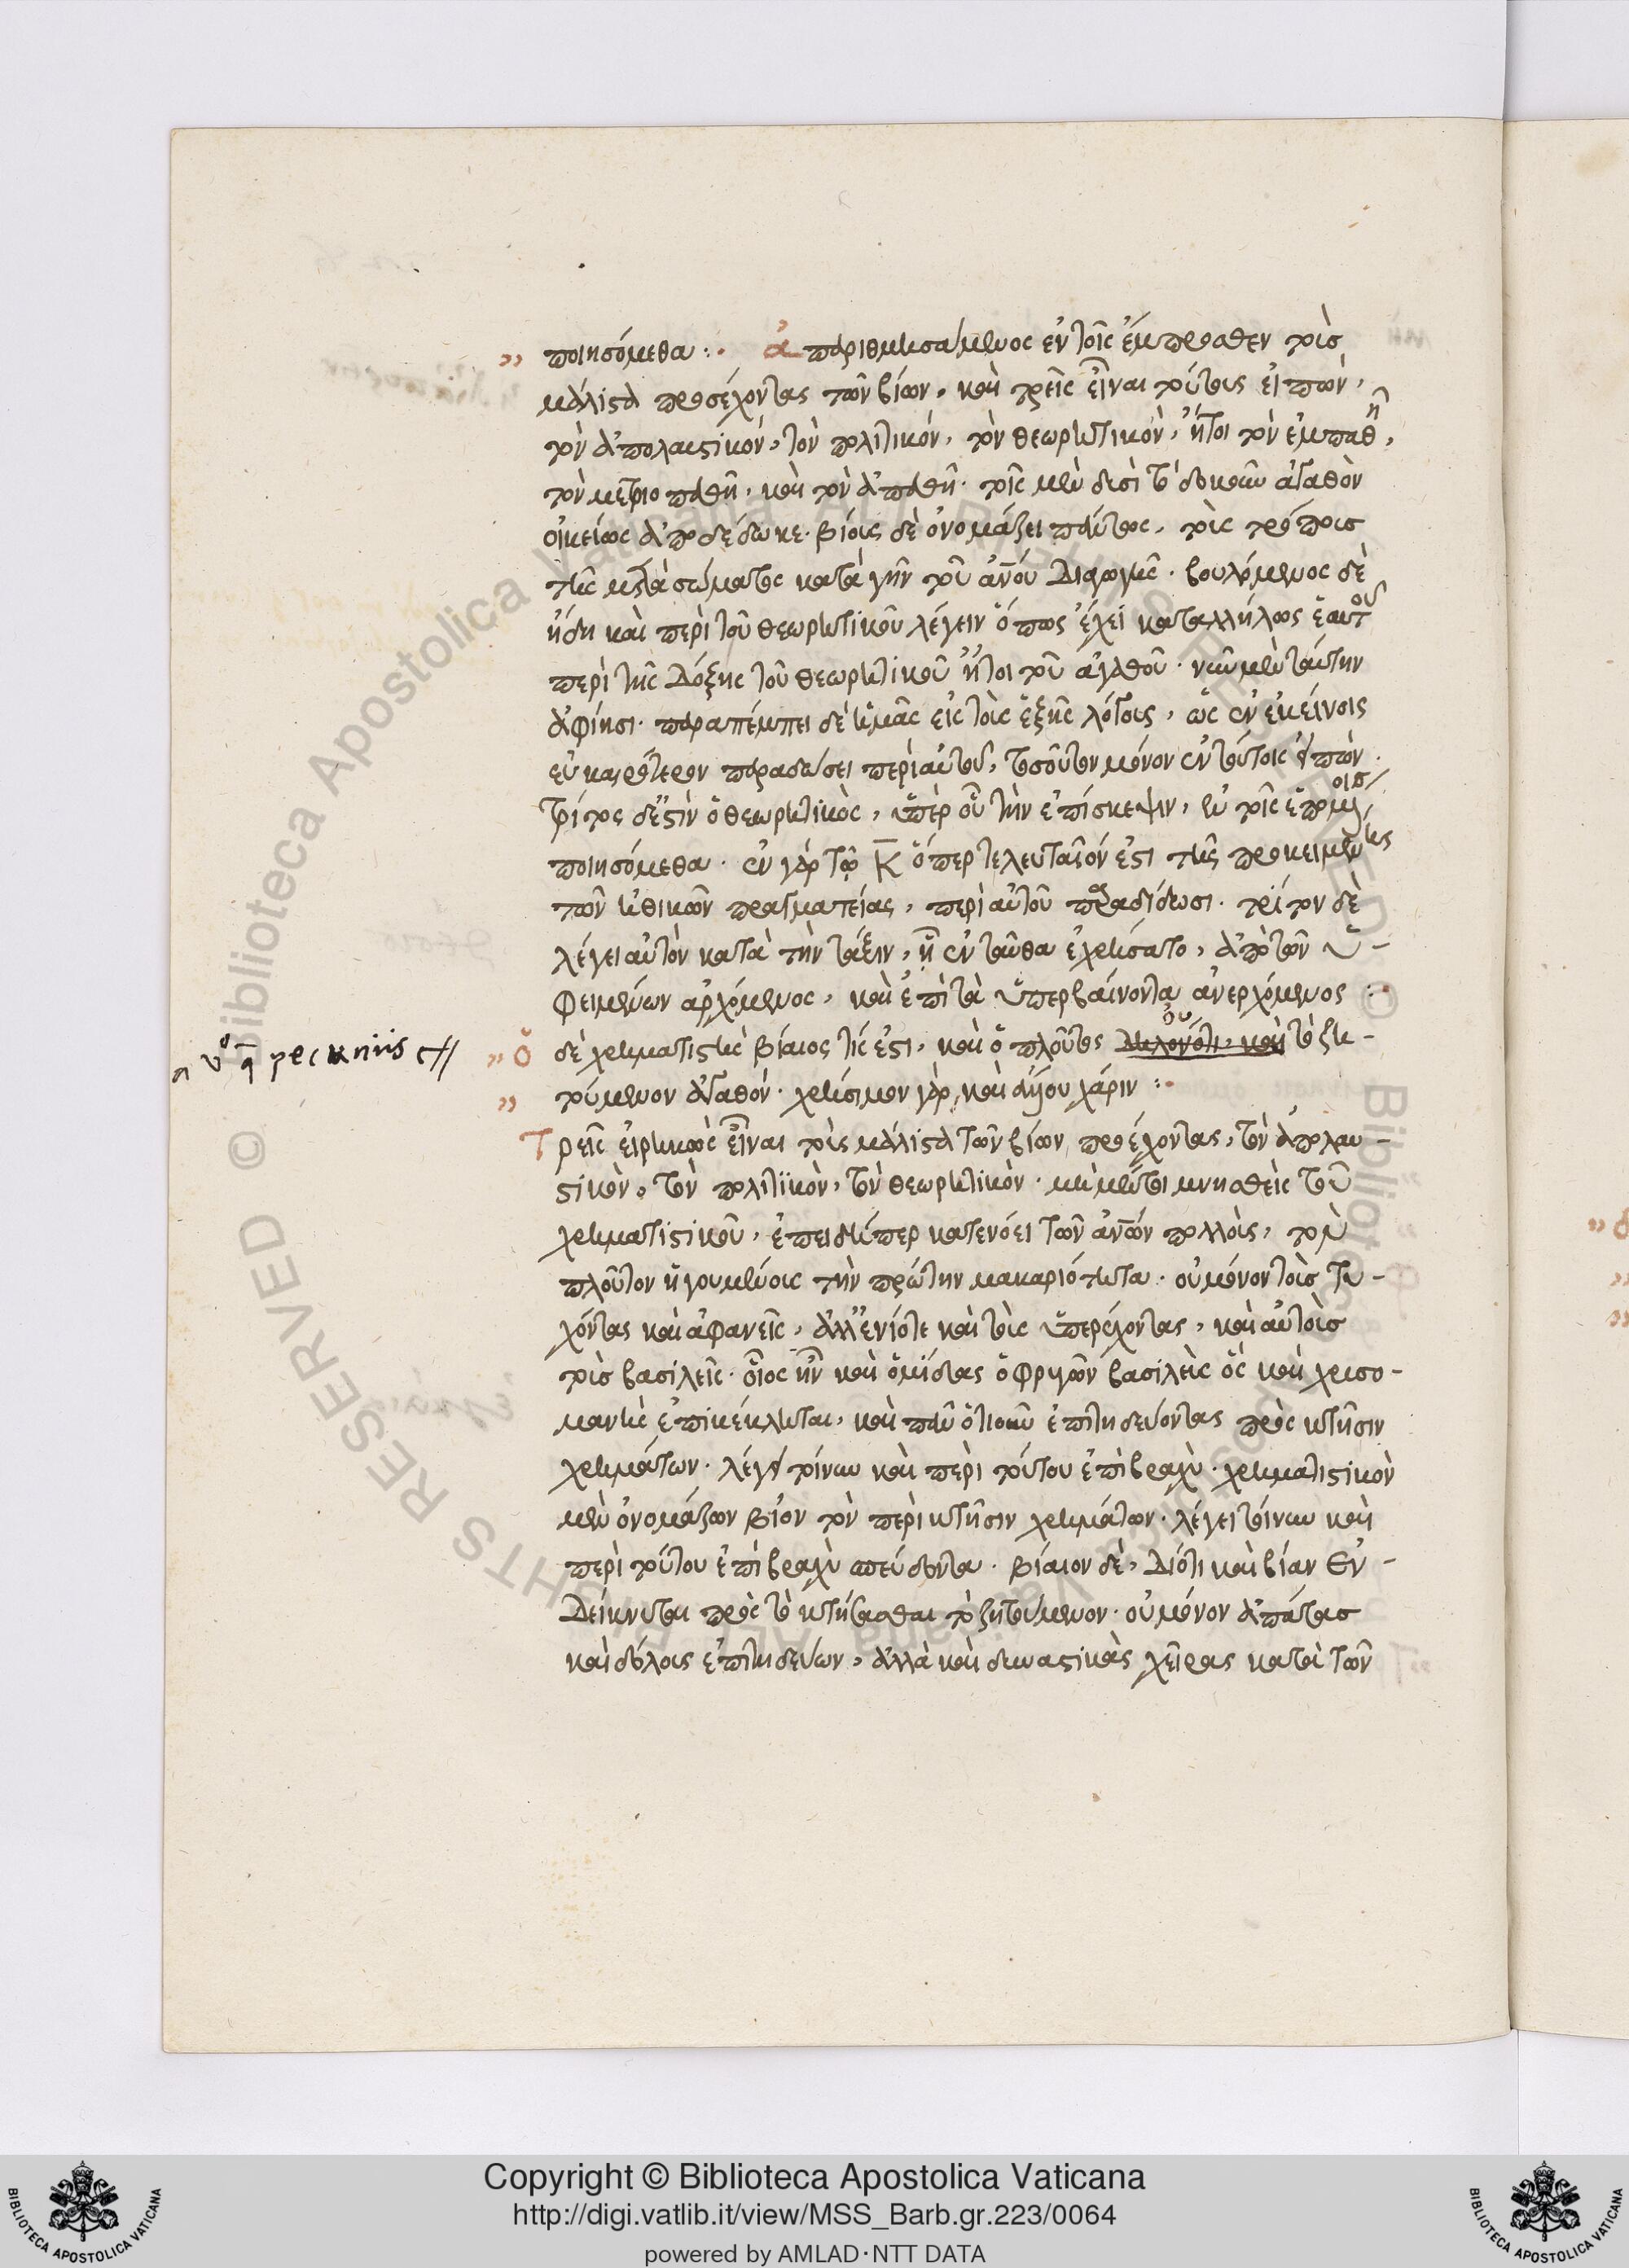 ποιησόμεθα :· ἀπαριθμησάμενος ἐν τοῖς ἔμπροσθεν τοὺς
μάλιστα προσέχοντας τῶν βίων, καὶ τρεῖς εἶναι τούτους εἰπών,
τὸν ἀπολαυστικόν, τὸν πολιτικόν, τὸν θεωρητικόν, ἤτοι τὸν ἐμπαθῆ,
τὸν μετριοπαθῆ, καὶ τὸν ἀπαθῆ· τοῖς μὲν δυσὶ τὸ δοκοῦν ἀγαθὸν
οἰκείως ἀποδέδωκε· βίους δὲ ὀνομάζει πάντως, τοὺς τρόπους
τῆς μετὰ σώματος κατὰ γῆν τοῦ ἀνου διαγωγῆς· βουλόμενος δὲ
ἤδη καὶ περὶ τοῦ θεωρητικοῦ λέγειν ὅπως ἔχει καταλλήλως ἑαυτοῦ
περὶ τῆς δόξης τοῦ θεωρητικοῦ ἤτοι τοῦ ἀγαθοῦ· νῦν μὲν ταύτην
ἀφίησι· παραπέμπει δὲ ἡμᾶς εἰς τοὺς ἑξῆς λόγους, ὡς ἐν ἐκείνοις
εὐκαιρότερον παραδώσει περὶ αὐτοῦ, τοσοῦτον μόνον ἐν τούτοις εἰπὼν·
τρίτος δέ ἐστιν ὁ θεωρητικὸς, ὑπὲρ οὗ τὴν ἐπίσκεψιν, ἐν τοῖς ἑπομένοις
ποιησόμεθα· ἐν γὰρ τῷ Κ ὅπερ τελευταῖόν ἐστι τῆς προκειμένης
τῶν ἠθικῶν πραγματείας, περὶ αὐτοῦ παραδίδωσι· τρίτον δὲ
λέγει αὐτὸν κατὰ τὴν τάξιν, ᾗ ἐνταῦθα ἐχρήσατο, ἀπὸ τῶν ὑ-
φειμένων ἀρχόμενος, καὶ ἐπὶ τὰ ὑπερβαίνοντα ἀνερχόμενος :·
ὁ δὲ χρηματιστὴς βίαιος τίς ἐστι, καὶ ὁ πλοῦτος δηλονότι, καὶ οὐ τὸ ζη-
τούμενον ἀγαθόν· χρήσιμον γὰρ, καὶ ἄλλου χάριν :·
Τρεῖς εἰρηκὼς εἶναι τοὺς μάλιστα τῶν βίων προέχοντας, τὸν ἀπολαυ-
στικὸν, τὸν πολιτικὸν, τὸν θεωρητικὸν· μὴ μέντοι μνησθεὶς τοῦ
χρηματιστικοῦ, ἐπειδήπερ κατενόει τῶν ἀνων πολλοὺς, τὸν
πλοῦτον ἡγουμένους τὴν πρώτην μακαριότητα· οὐ μόνον τοὺς τυ-
χόντας καὶ ἀφανεῖς, ἀλλ' ἐνίοτε καὶ τοὺς ὑπερέχοντας, καὶ αὐτοὺς
τοὺς βασιλεῖς· οἷος ἦν καὶ ὁ μίδας ὁ φρυγῶν βασιλεὺς ὃς καὶ χρυσο-
μανὴς ἐπικέκληται, καὶ πᾶν ὁτιοῦν ἐπιτηδεύοντας πρὸς κτῆσιν
χρημάτων· λέγει τοίνυν καὶ περὶ τούτου ἐπὶ βραχὺ· χρηματιστικὸν
μὲν ὀνομάζων βίον τὸν περὶ κτῆσιν χρημάτων· λέγει τοίνυν καὶ
περὶ τούτου ἐπὶ βραχὺ σπεύδοντα· βίαιον δὲ, διότι καὶ βίαν ἐν-
δείκνυται πρὸς τὸ κτήσασθαι τὸ ζητούμενον· οὐ μόνον ἀπάτας
καὶ δόλους ἐπιτηδεύων, ἀλλὰ καὶ δυναστικὰς χεῖρας κατὰ τῶν
pecuniis
Copyright © Biblioteca Apostolica Vaticana
http://digi.vatlib.it/view/MSS_Barb.gr.223/0064
powered by AMLAD·NTT DATA
BIBLIOTECA APOSTOLICA VATICANA
BIBLIOTECA APOSTOLICA VATICANA